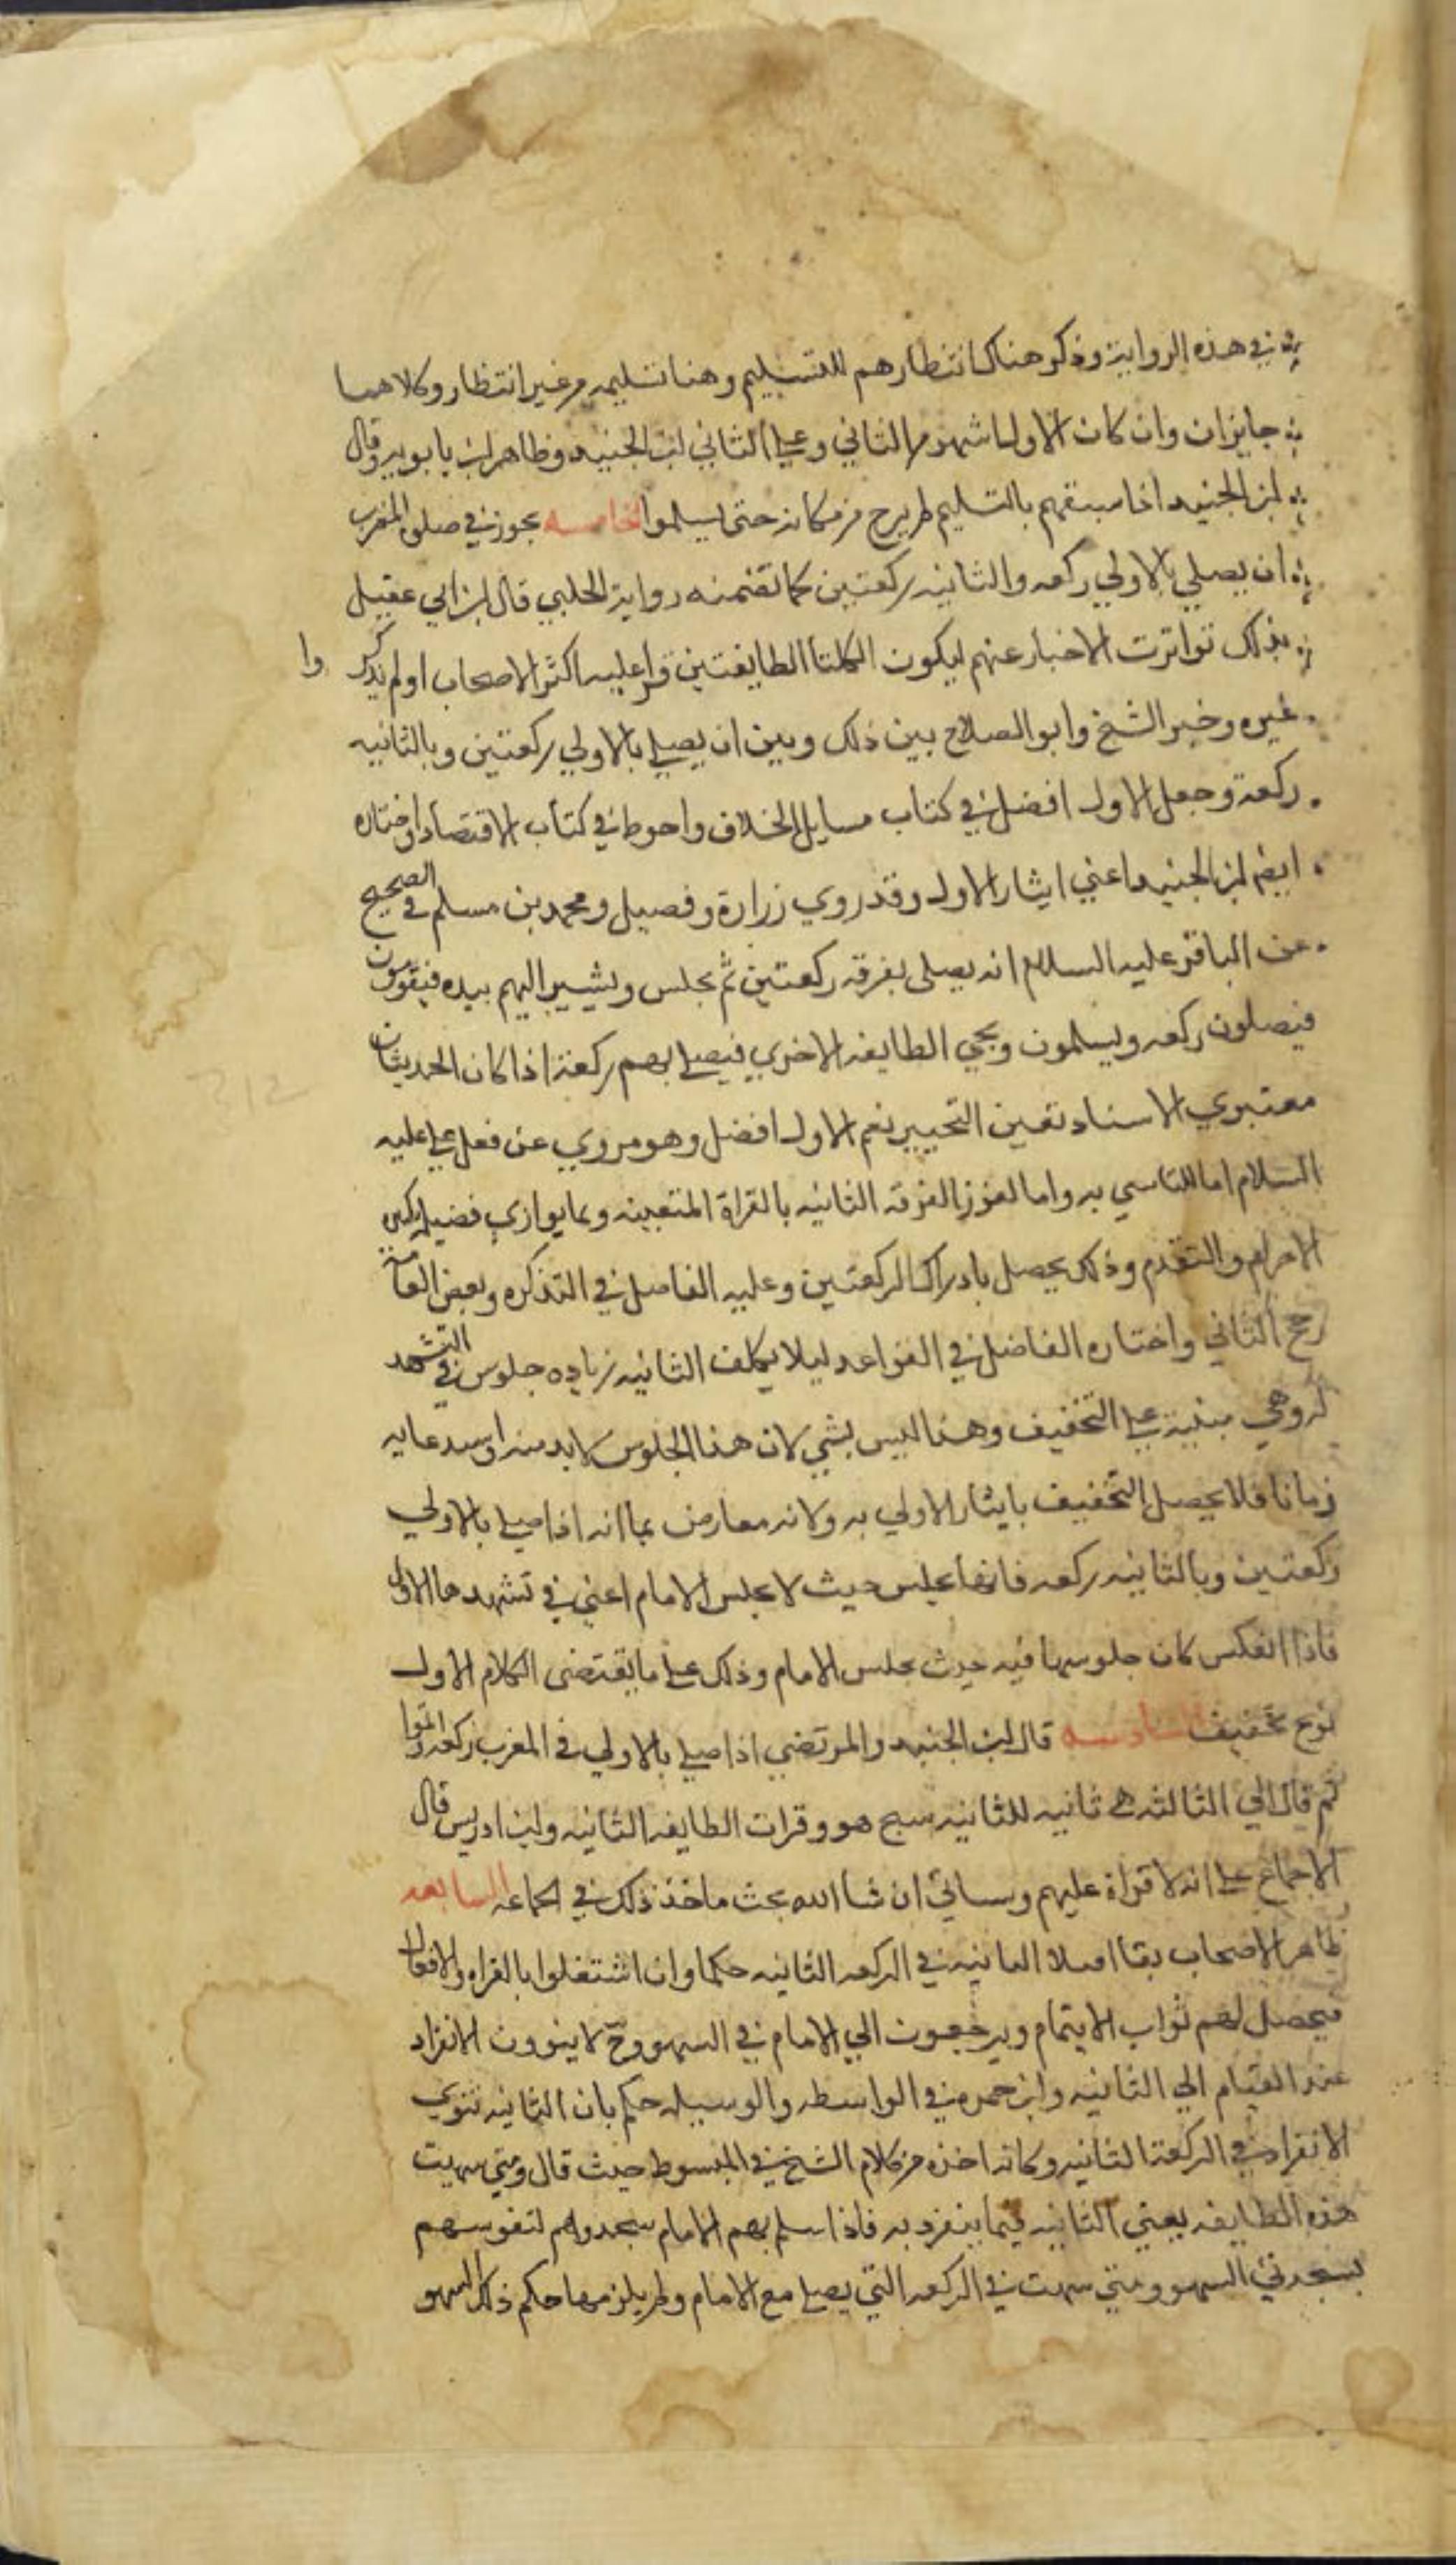 في هذه الرواية وذكر هناك انتظارهم للتسليم وهنا تسليمه من غير انتظار وكلاهما
جايزان وان كان الاول اشهر والثاني وعلى الثاني ابن الجنيد وظاهر ابن بابويه وقال
ابن الجنيد اذا سبقهم بالتسليم لم يبرح من مكانه حتى يسلموا الخامسه يجوز في صلوة المغرب
ان يصلي بالاولي ركعه والثانيه ركعتين كما تضمنه رواية الحلبي قال ابن ابي عقيل
بذلك تواترت الاخبار عنهم ليكون لكلتا الطايفتين قراه وعليه اكثر الاصحاب او لم يذكروا
غيره وخير الشيخ وابو الصلاح بين ذلك وبين ان يصلي بالاولي ركعتين وبالثانيه
ركعة وجعل الاول افضل في كتاب مسايل الخلاف واحوط في كتاب الاقتصاد واختاره
ايضا ابن الجنيد اعني ايثار الاول وقد روي زرارة وفضيل ومحمد بن مسلم في الصحيح
عن الباقر عليه السلام انه يصلى بفرقه ركعتين ثم يجلس ويشير اليهم بيده فيقومون
فيصلون ركعه ويسلمون ويجي الطايفه الاخري فيصلي بهم ركعة اذا كان الحديثان
معتبري الاسناد تعين التخيير نعم الاول افضل وهو مروي عن فعل علي عليه
السلام اما للتاسي به واما لفوز الفرقه الثانيه بالقراة المتعينه وبما يوازي فضيله تكبيره
الاحرام والتقدم وذلك يحصل بادراك الركعتين وعليه الفاضل في التذكره وبعض العامة
رجح الثاني واختاره الفاضل في القواعد ليلا يكلف الثانيه زياده جلوس في التشهد
وهي مبنية على التخفيف وهذا ليس بشي لان هذا الجلوس لابد منه
زمانا فلا يحصل التخفيف بايثار الاولي به ولانه معارض بما انه اذا صلي بالاولي
ركعتين وبالثانيه ركعه فانها تجلس حيث لا يجلس الامام اعني في تشهدها الاول
فاذا انعكس كان جلوسها فيه حيث يجلس الامام وذلك على ما يقتضى الكلام الاول
نوع تخفيف السادسه قال ابن الجنيد والمرتضي اذا صلي بالاولي في المغرب ركعه واتموا
ثم قام الي الثالثه هي ثانيه للثانيه سبح هو وقرات الطايفه الثانيه وابن ادريس قال
الاجماع على انه لا قراة عليهم وسياتي ان شا الله بحث ماخذ ذلك في الجماعه السابعه
ظاهر الاصحاب بقا اقتدا الثانيه في الركعه الثانيه حكما وان اشتغلوا بالقراه والافعال
فيحصل لهم ثواب الايتمام ويرجعون الي الامام في السهو وح لا ينوون الانفراد
عند القيام الي الثانيه وابن حمزه في الواسطه والوسيله حكم بان الثانيه تنوي
الانفراد في الركعة الثانيه وكانه اخذه من كلام الشيخ في المبسوط حيث قال ومتي سهت
هذه الطايفه يعني الثانيه فيما ينفرد به فاذا سلم بهم الامام سجدوا هم لنفوسهم
سجدتي السهو ومتي سهت في الركعه التي يصلي مع الامام لم يلزمها حكم ذلك السهو